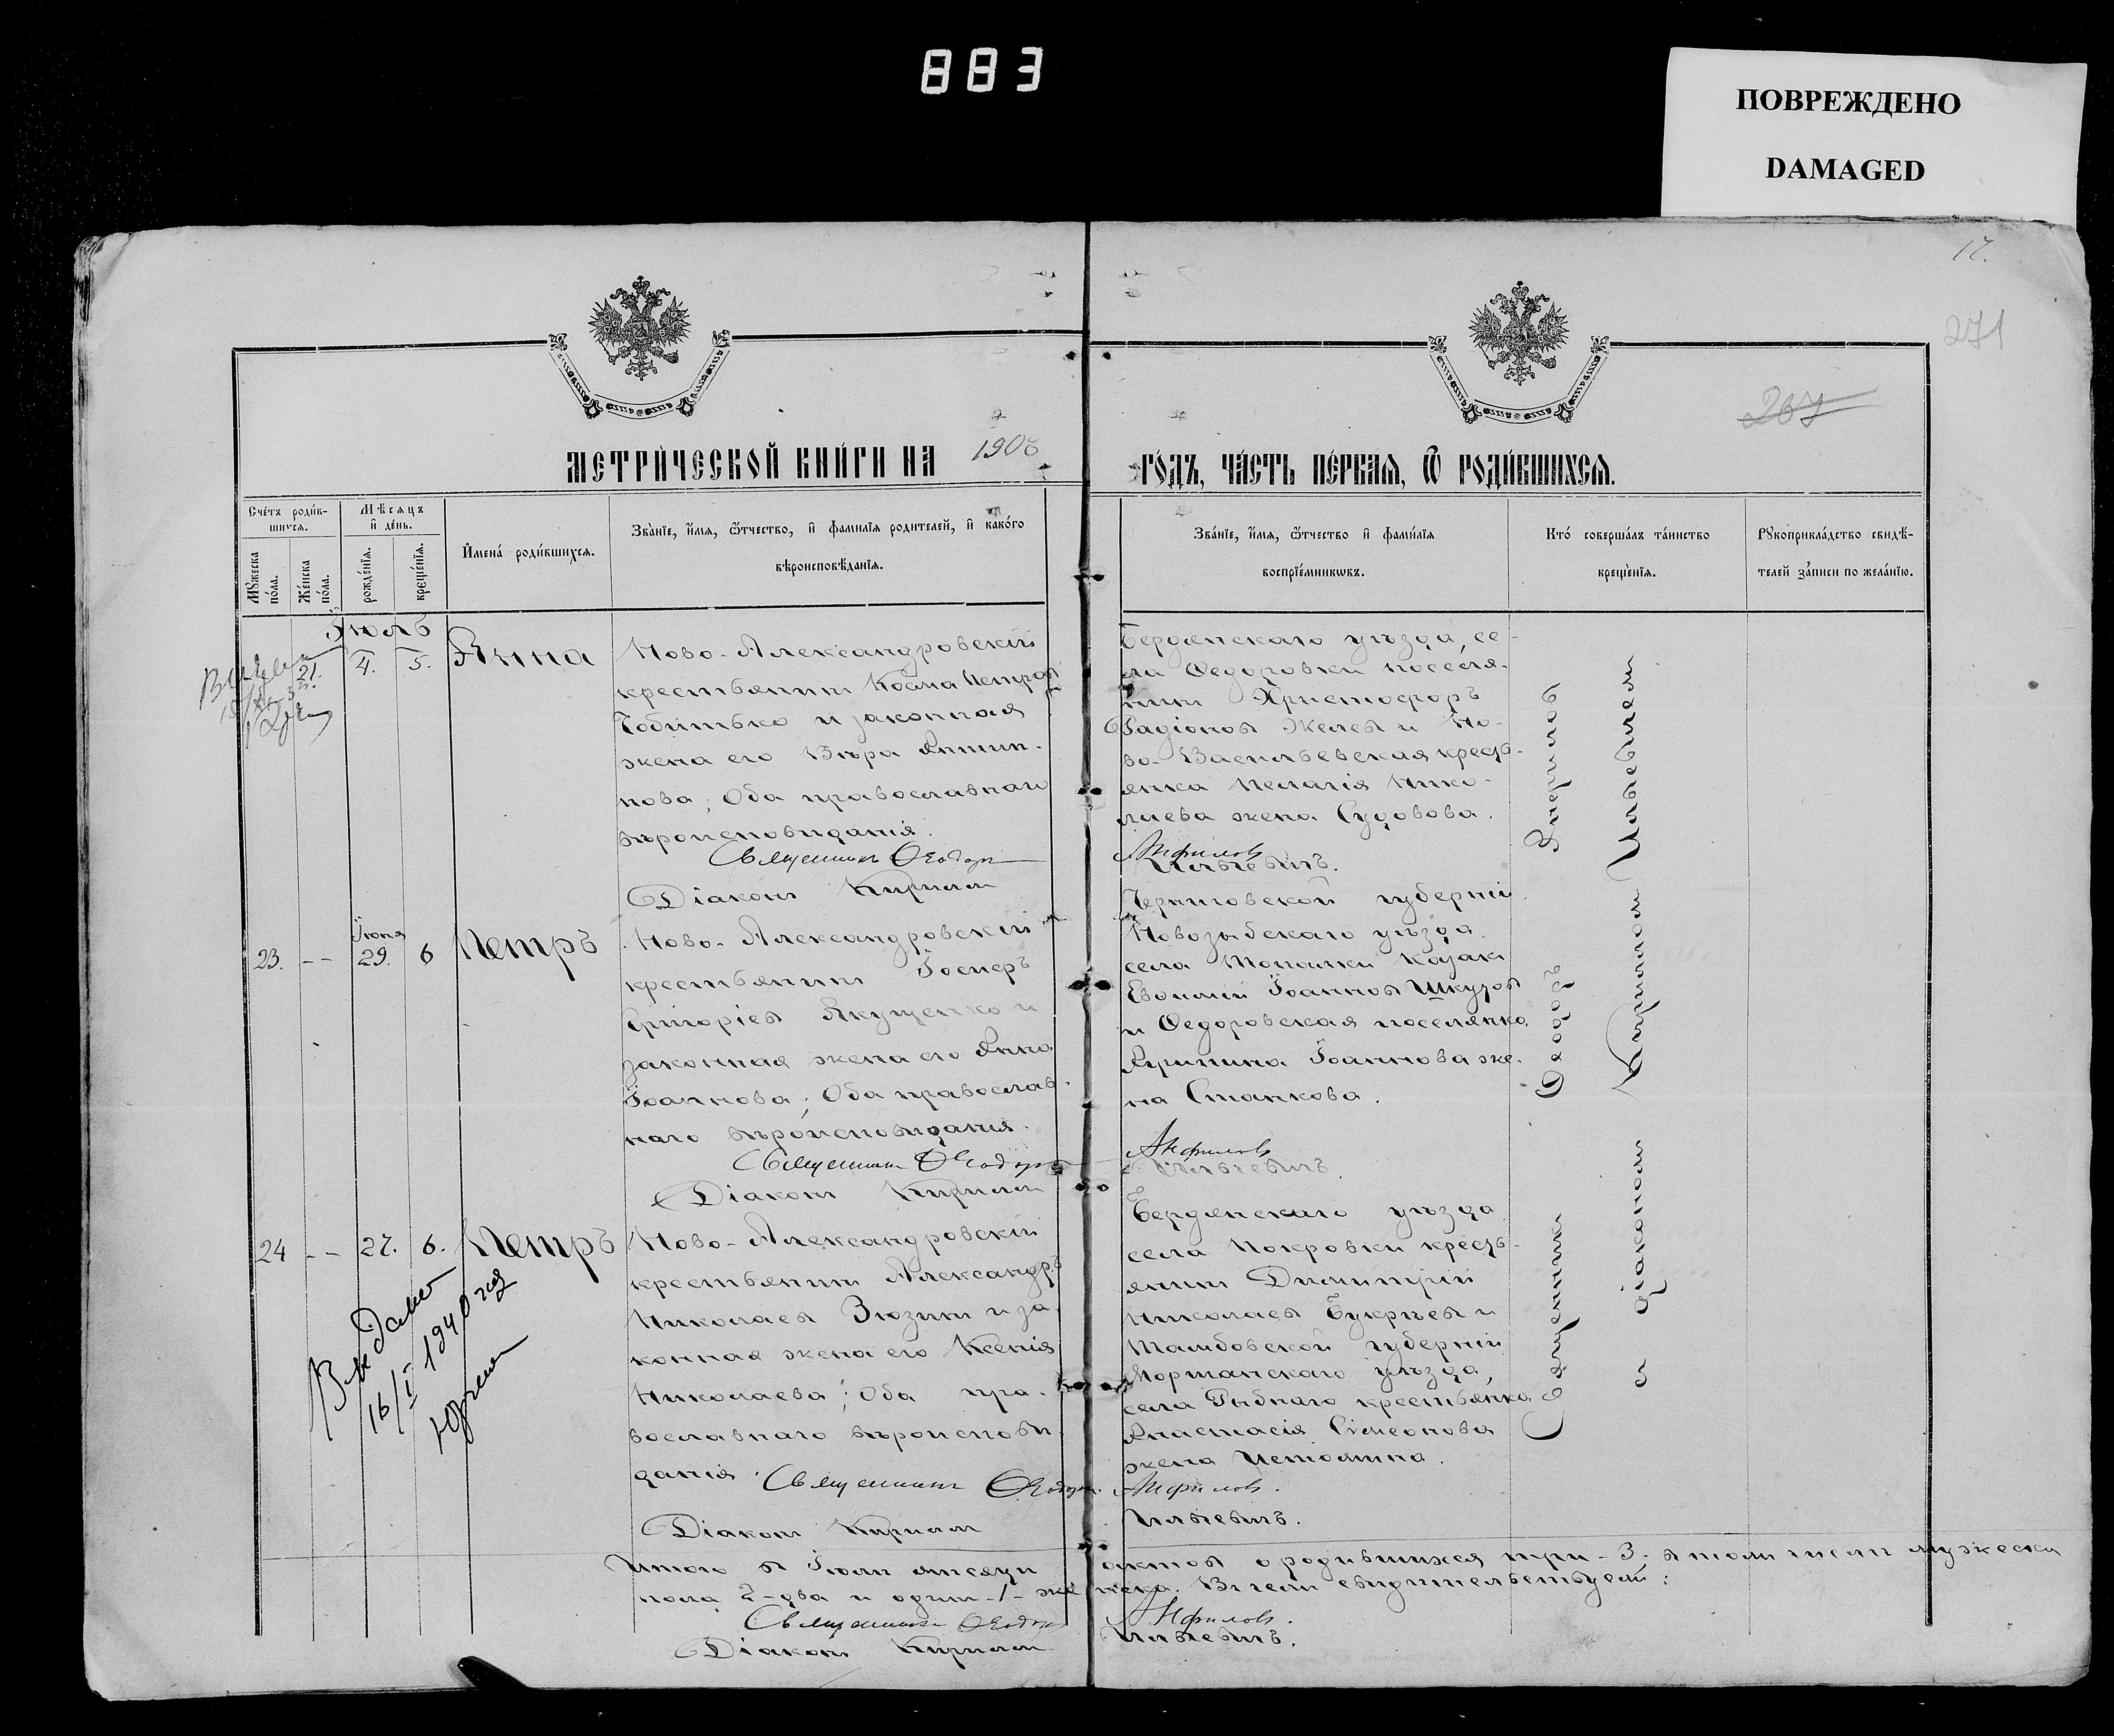 883
ПОВРЕЖДЕНО
DAMAGED
17.
271
267
МЕТРИ́ЧЕСКОЙ КНИ́ГИ НА 1908 ГО́ДЪ, ЧА́СТЬ ПЕ́РВАЯ, Ѿ РОДИ́ВШИХСЯ.
Сче́тъ роди́в-
шихся.
Мѣсяцъ
и де́нь.
Му́жеска
по́ла.
Же́нска
по́ла.
рожде́нїя.
креще́нїя.
Имена́ роди́вшихся.
Зва́нїе, и́мя, ѿтчество, и фамилїя родителей, и како́го
вѣроисповѣ́данїя.
Зва́нїе, и́мя, ѿтчество и фами́лїя
воспрїе́мникѡвъ.
Кто́ соверша́лъ та́инство
креще́нїя.
Рукоприкла́дство свидѣ-
телей за́писи по жела́нїю.
Іюль
21. 4. 5. Анна
Ново-Александровскій
крестьянинъ Косма Петровъ
и законная
жена его Вѣра Антип-
пова; Оба православнаго
вѣроисповѣданія.
Священникъ Ѳеодоръ
Діаконъ Кириллъ
Бердянскаго уѣзда, се-
ла Федоровки поселя-
нинъ Христофоръ
Радіоновъ Желевъ и Но-
во-Васильевская кресть-
янка Пелагія Нико-
лаева жена Судовова.
Анфиловъ
Ильевичъ.
23. -- Іюня 29. 6 Петръ
Ново-Александровскій
крестьянинъ
Григоріевъ Якущенко и
законная жена его Анна
Іоаннова; Оба православ-
наго вѣроисповѣданія.
Священникъ Ѳеодоръ
Діаконъ Кириллъ
Черниговской губерніи
Новозыбскаго уѣзда
села казакъ
Евѳимій Іоанновъ
и Федоровская поселянка
Агрипина Іоаннова же-
на Станкова.
Анфиловъ
Ильевичъ.
24 -- 27. 6. Петръ
Выдано
16/I 1940 год
Ново-Александровскій
крестьянинъ Александръ
Николаевъ Зюзинъ и за-
конная жена его Ксенія
Николаева; Оба пра-
вославнаго вѣроисповѣ-
данія. Священникъ Ѳеодоръ
Діаконъ Кириллъ
Бердянскаго уѣзда
села Покровки кресть-
янинъ Димитрій
Николаевъ Букрѣевъ и
Тамбовской губерніи
Моршанскаго уѣзда,
села Рыбнаго крестьянка
Анастасія Симеонова
жена
Анфиловъ.
Ильевичъ.
Священникъ Ѳеодоръ Анфиловъ
и діакономъ Кирилломъ Ильевичемъ
Итого въ Іюлѣ мѣсяцѣ актовъ о родившихся три-3. въ томъ числѣ мужеска
пола 2-два и одинъ-1-женска. Въ чемъ свидѣтельствуемъ:
Священникъ Ѳеодоръ Анфиловъ.
Діаконъ Кириллъ Ильевичъ.